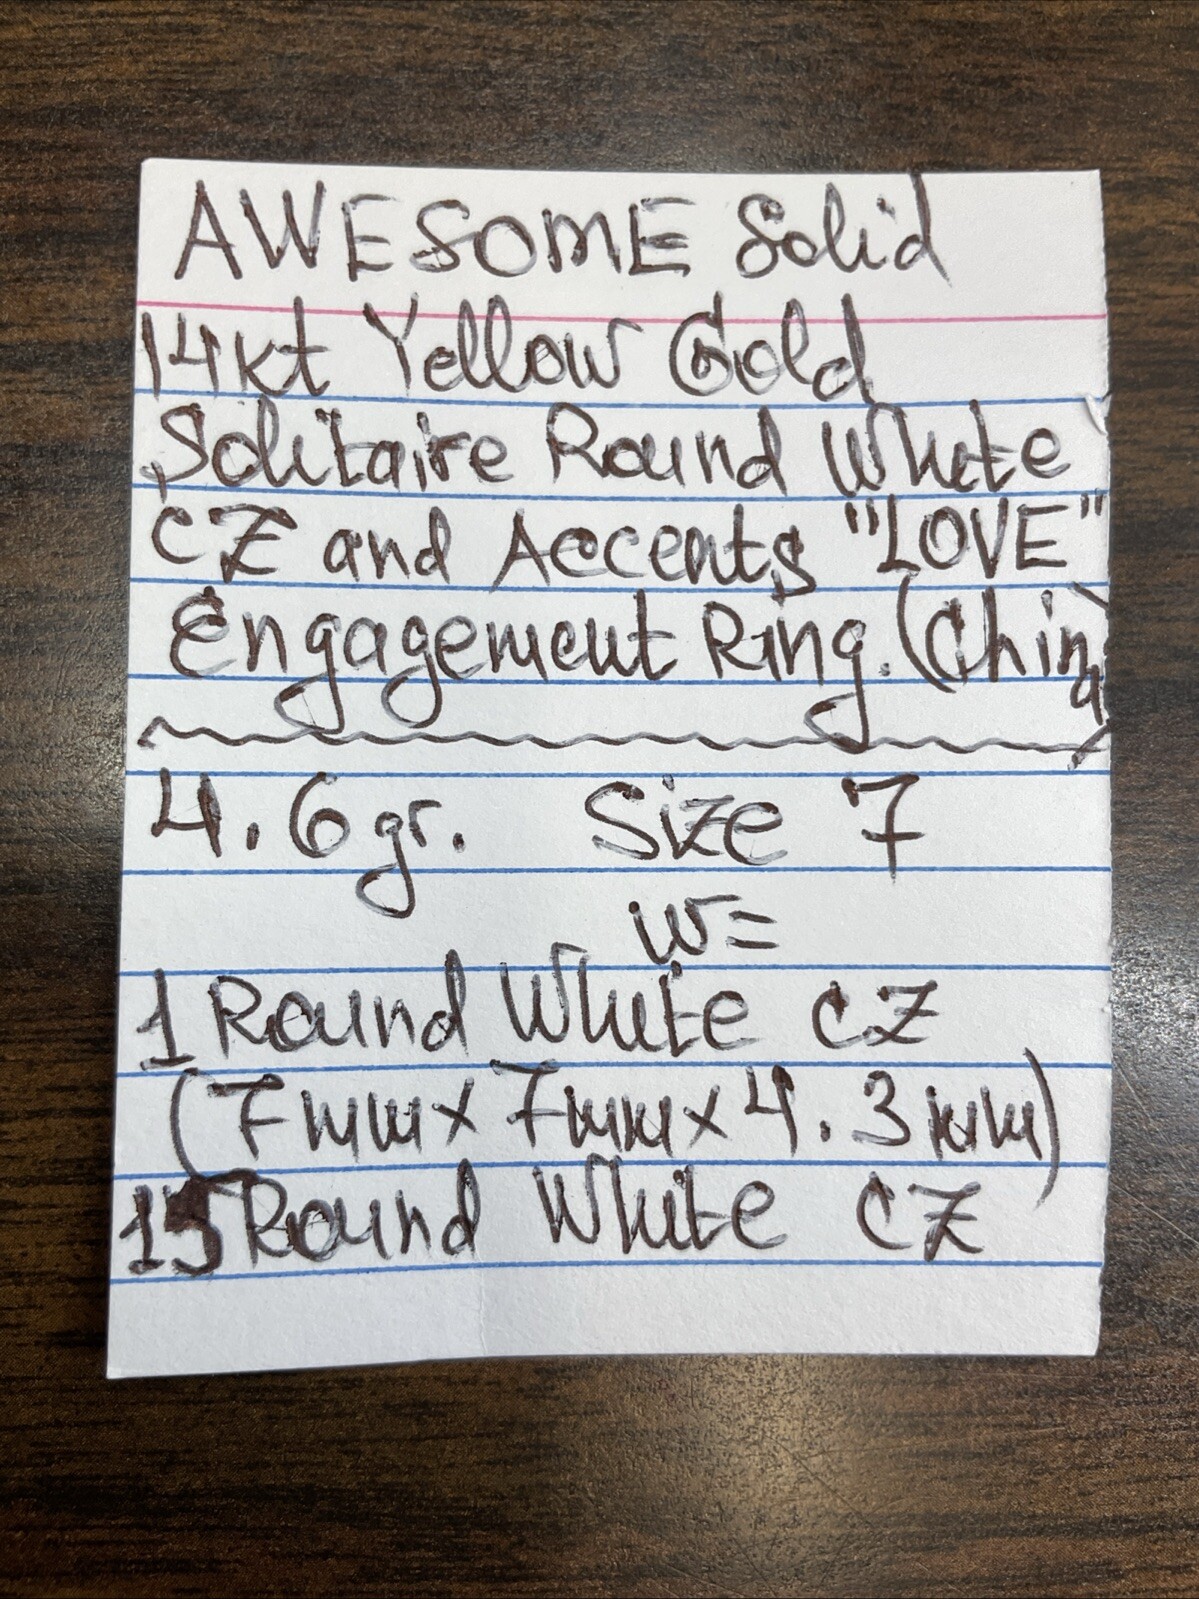 AWESOME Solid
14kt Yellow Gold
Solitaire Round White
CZ and Accents "LOVE"
Engagement Ring. (China)
4.6gr. Size 7
W=
1 Round White CZ
(7mm x 7mm x 4.3mm)
15 Round White CZ